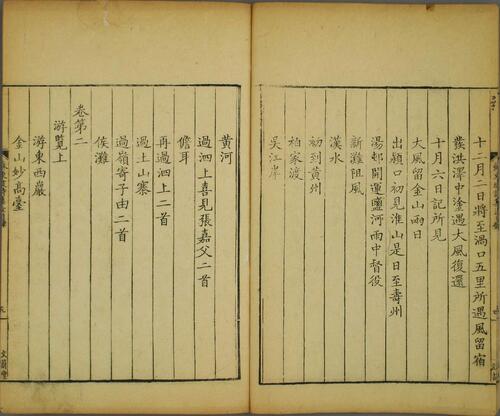 十二月二日將至渦口五里所遇風留宿
發洪澤中塗遇大風復還
十月六日記所見
大風留金山兩日
出潁口初見淮山是日至壽州
湯村開運鹽河雨中督役
新灘阻風
漢水
初到黃州
柏家渡
吳江岸
黃河
過泗上喜見張嘉父二首
儋耳
再過泗上二首
過土山寨
過嶺寄子由二首
俟灘
卷第二
游覽上
游東西巖
金山妙高臺
文蔚堂